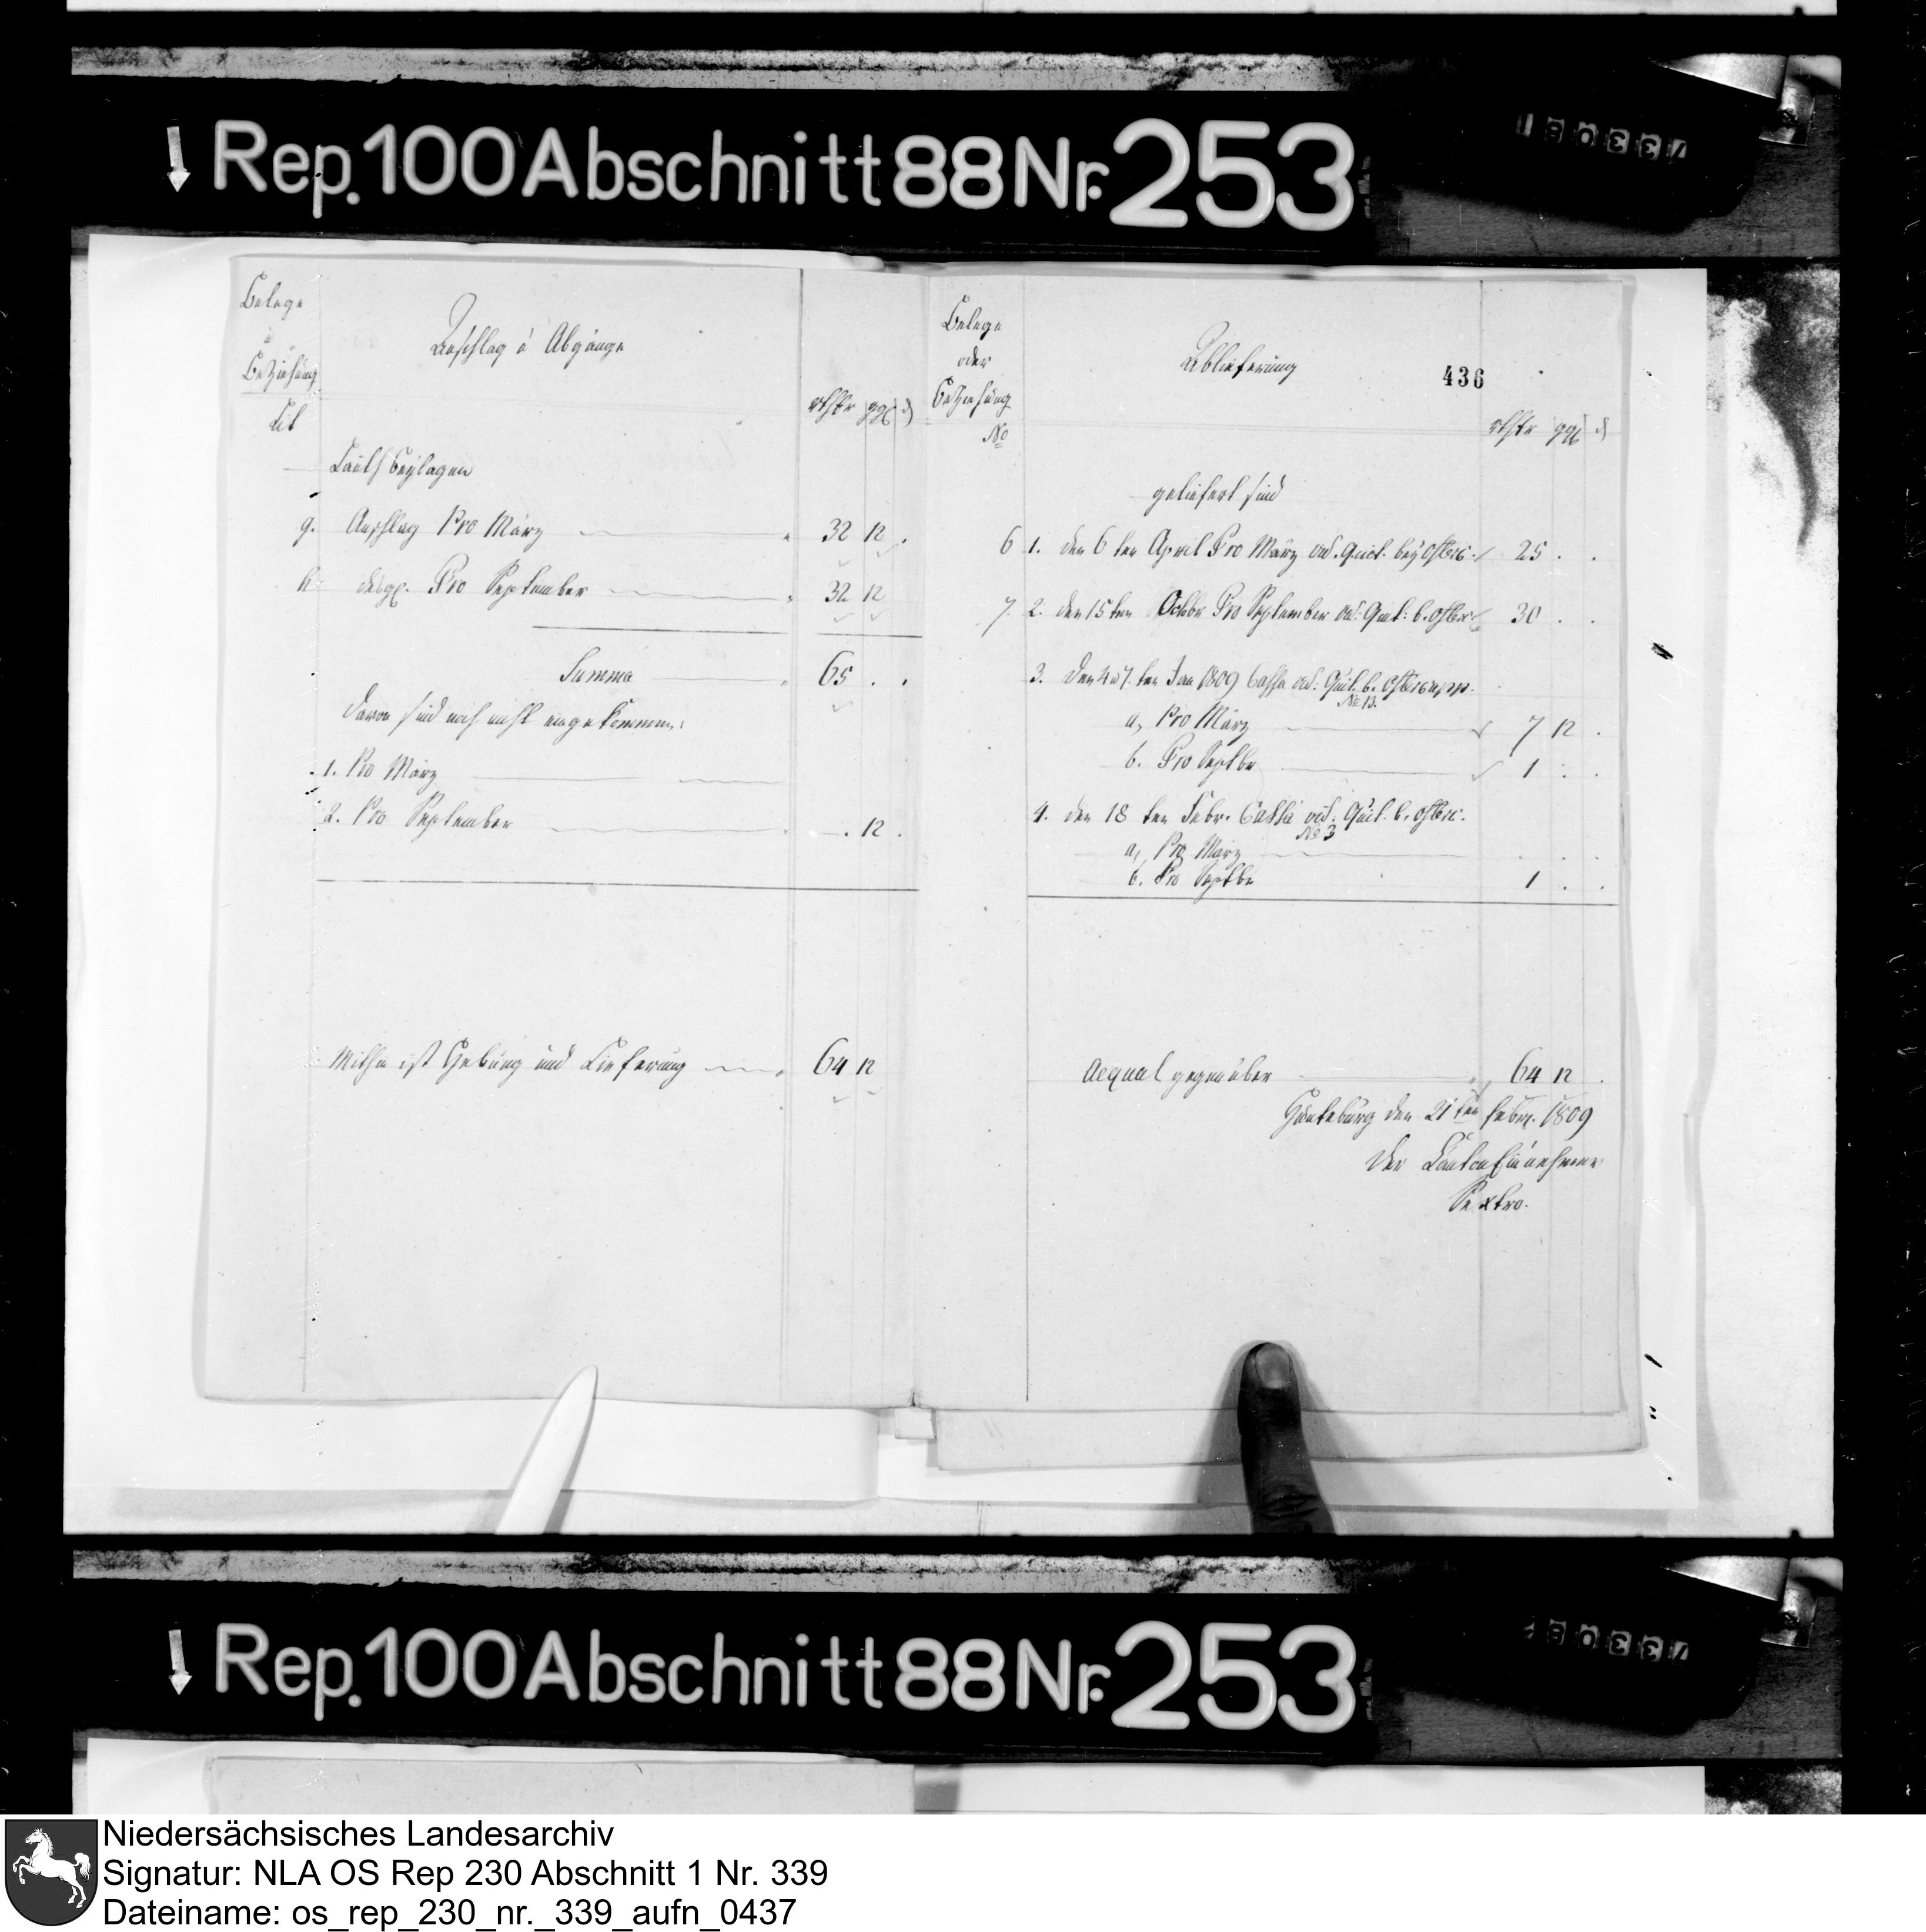 Rep. 100 Abschnitt 88 Nr. 253
Belege
a
Beziehung
Lit
Anschlag à Abgänge
rthlr ggl d
Lauth Beylagen
g. Anschlag Pro März 32 12 .
h. desgl. Pro September 32 12
Summa 65 . .
Davon sind noch nicht eingekommen:
1. Pro März
2. Pro September —. 12 .
Mithin ist Hebung und Lieferung 64 12
Belege
oder
Beziehung
No
Ablieferung
436
rthlr ggl d
geliefert sind
6 1. den 6ten April Pro März vid. Quit. bey 25 . .
7 2. den 15ten Octobr Pro September vid: Quit: b. 30 . .
3. Jan 1809 Cassa vid: Quit. b.
No 13.
a, Pro März 7 12 .
b. Pro Septbr 1 . .
4. den 18ten Febr. Cassa vid. Quit. b.
No 3
a, Pro März . . .
b. Pro Septbr 1 . .
Aequal gegenüber 64 12 .
den 21ten Febr. 1809
Der Canton Einnehmer
Sextro.
Rep. 100 Abschnitt 88 Nr. 253
Niedersächsisches Landesarchiv
Signatur: NLA OS Rep 230 Abschnitt 1 Nr. 339
Dateiname: os_rep_230_nr._339_aufn_0437